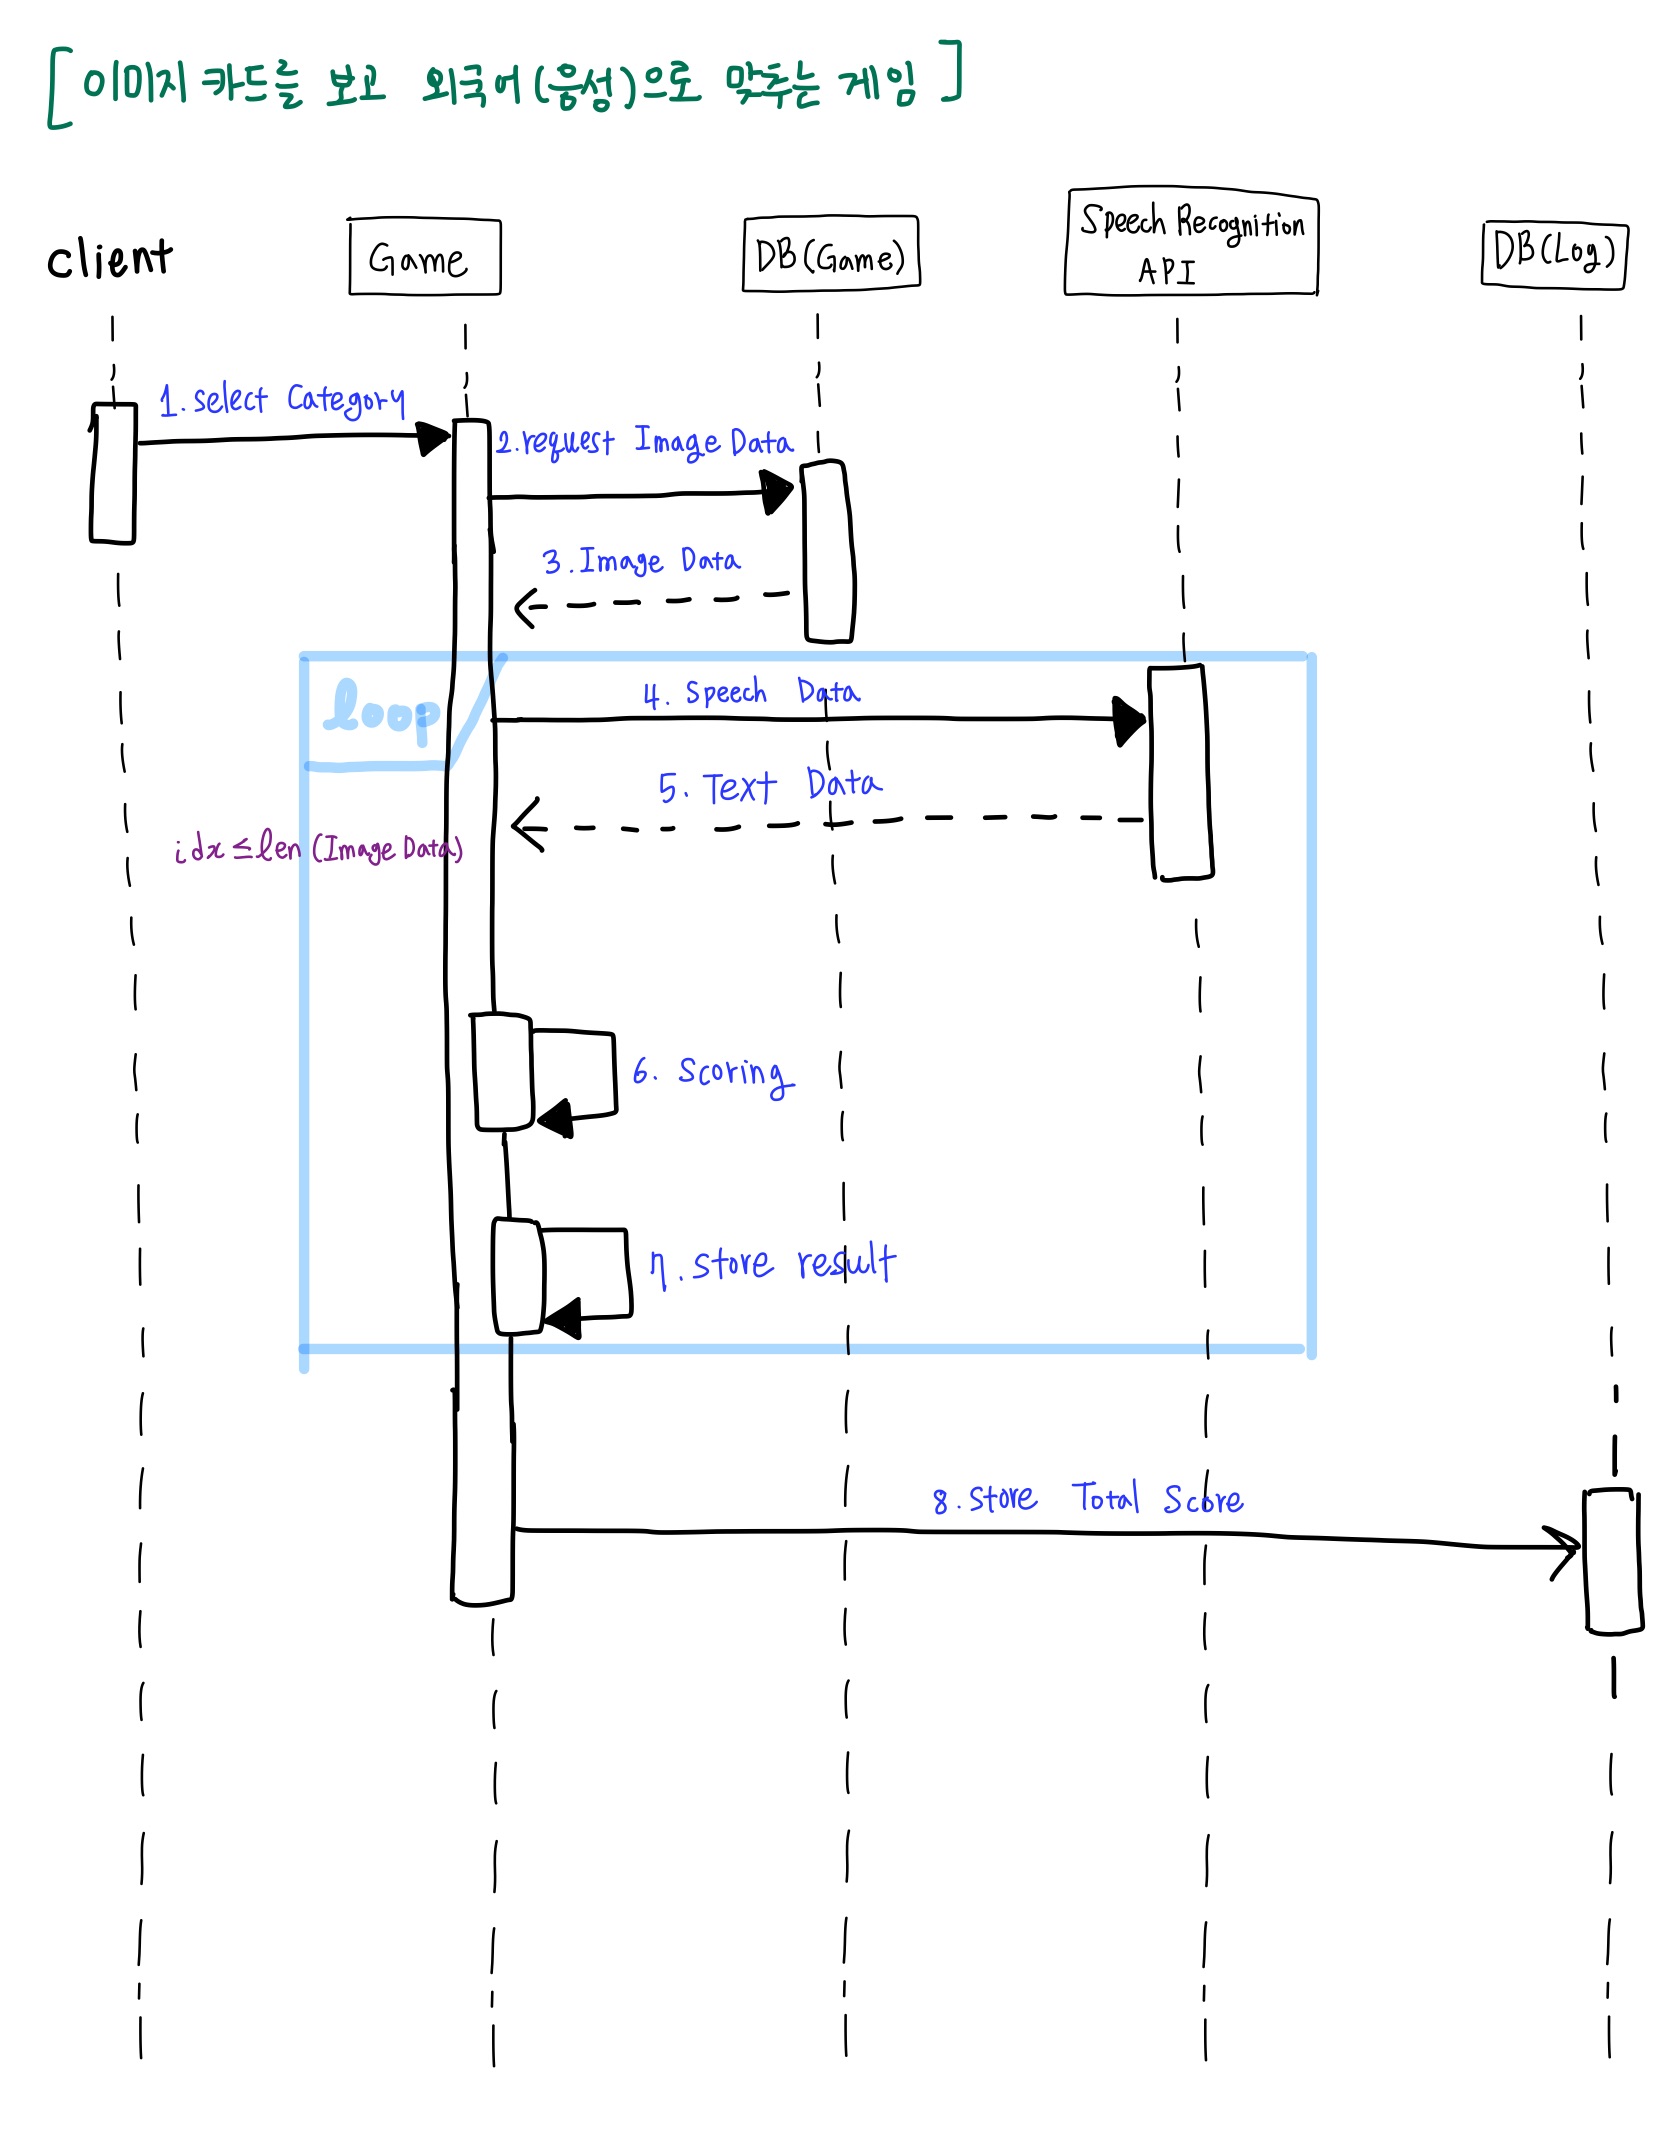 [이미지 카드를 보고 외국어(음성)으로 맞추는 게임]
client
Game
DB(Game)
Speech Recognition
API
DB(Log)
1. select Category
2. request Image Data
3. Image Data
loop
4. Speech Data
5. Text Data
idx ≤ len (Image Data)
6. Scoring
7. store result
8. store Total Score